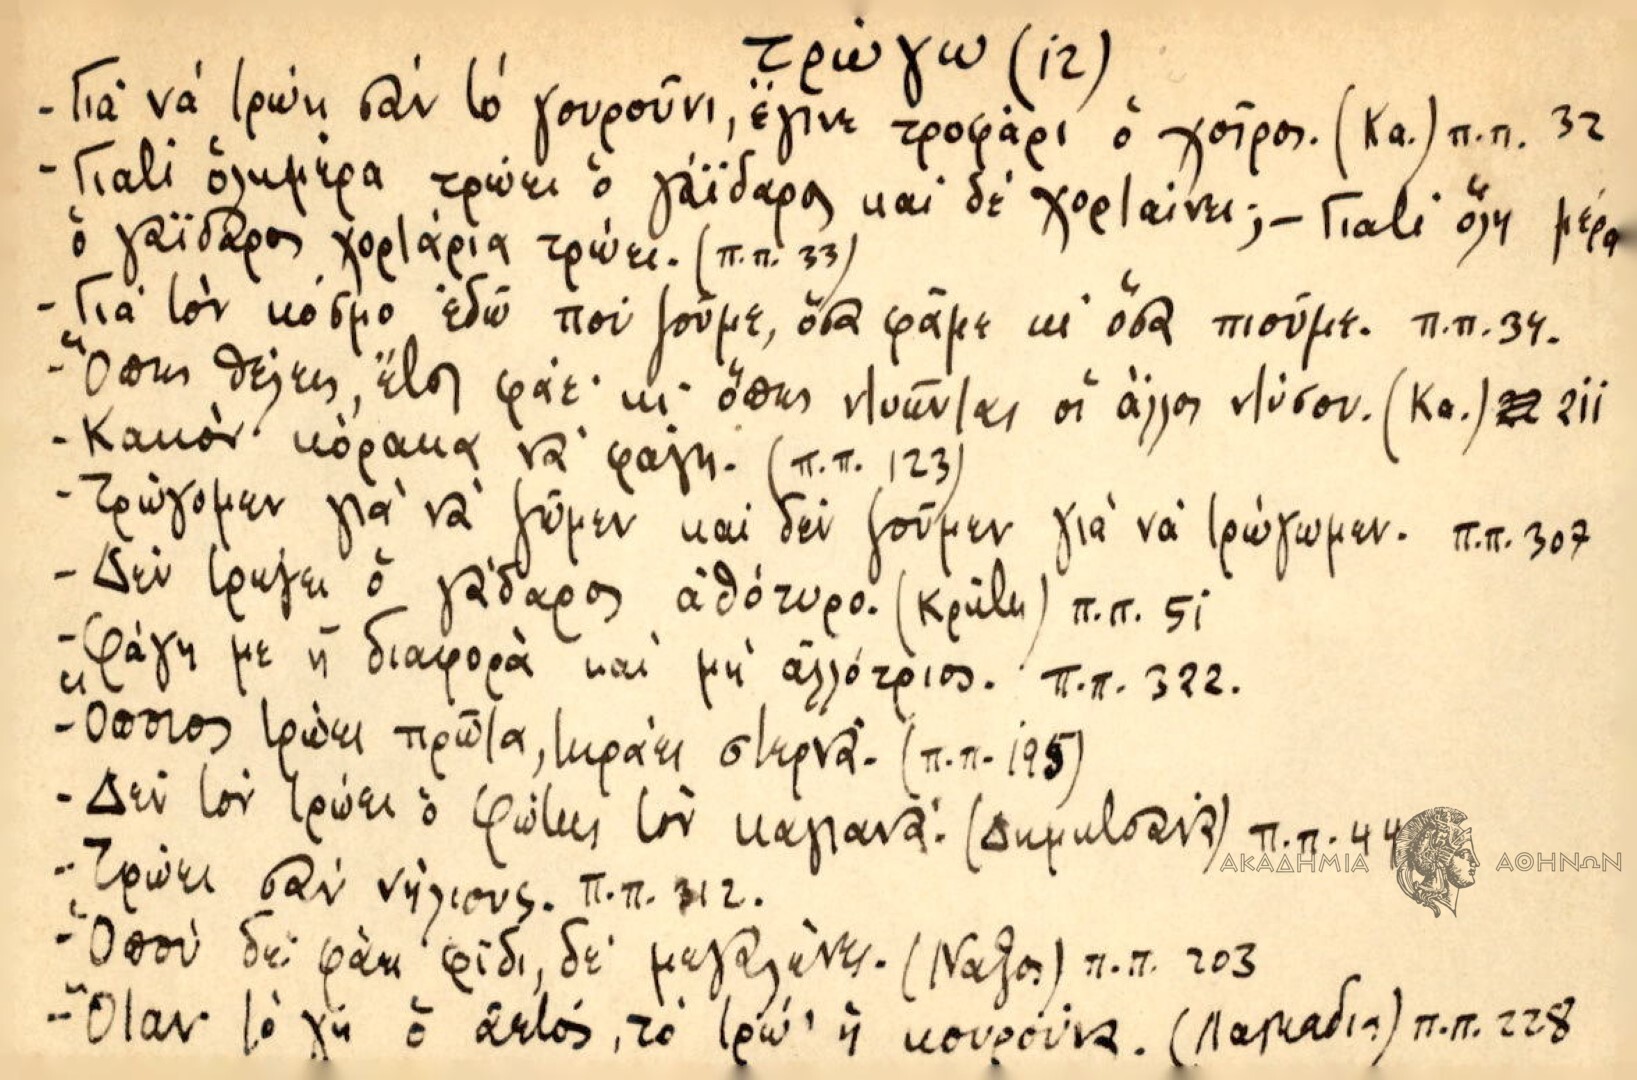 τρώγω (12)
- Γιὰ νά τρώη σάν τό γουροῦνι, ἔγινε τροφάρι ὁ χοῖρος. (Κα.) π.π. 32
- Γιατί ὁλημέρα τρώει ὁ γάϊδαρος καί δέ χορταίνει; - Γιατί ὅλη μέρα
ὁ γάϊδαρος χορτάρια τρώει. (π.π. 33)
- Γιά τόν κόσμο ἐδῶ πού ζοῦμε, ὅσα φᾶμε κι ὅσα πιοῦμε. π.π. 34.
- Ὅπως θέλεις, ἔτσι φάε κι ὅπως ντυῶνται οἱ ἄλλοι ντύσου. (Κα.) 211
- Κακόν κόρακα νά φάγη. (π.π. 123)
- Τρώγομεν γιά νά ζῶμεν καί δέν ζοῦμεν γιά νά τρώγωμεν. π.π. 307
- Δέν τρώγει ὁ γάδαρος ἀθότυρο. (Κρήτη) π.π. 51
- Φάγη με ἡ διαφορὰ καί μή ἀλλότριος. π.π. 322.
- Ὅποιος τρώει πρῶτα, τηράει στερνά. (π.π. 195)
- Δέν τόν τρώει ὁ Φώτης τόν καγιανά. (Δημητσάνα) π.π. 44
- Τρώει σάν νήλιους. π.π. 312.
- Ὁπού δέ φάει φίδι, δέ μεγαλώνει. (Νάξος) π.π. 203
- Ὅταν τό χῃ ὁ ἀετός, τό τρώ' ἡ κουρούνα. (Λαγκάδια) π.π. 228
ΑΚΑΔΗΜΙΑ ΑΘΗΝΩΝ